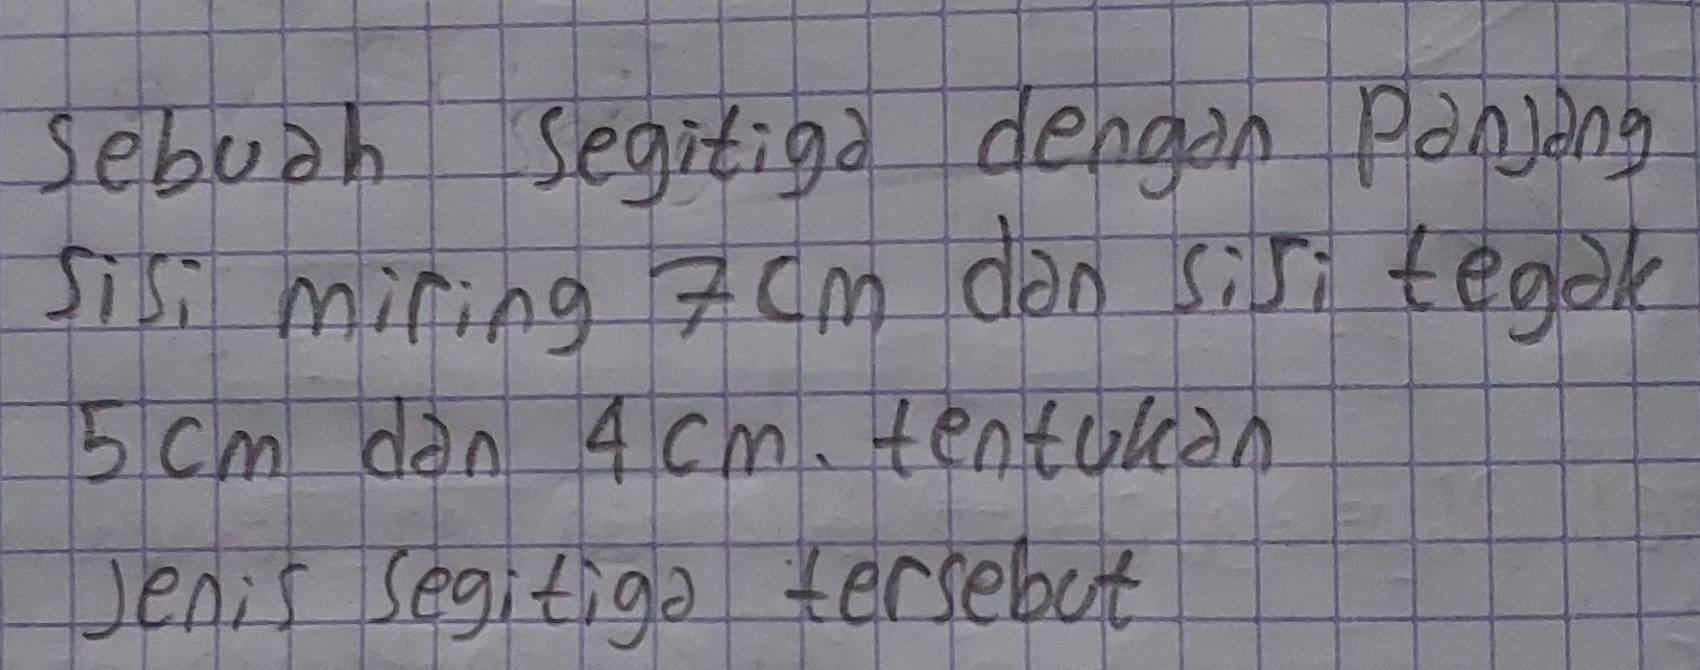 sebuah segitiga dengan Panjang
sisi miring 7 cm dan sisi tegak
5 cm dan 4 cm. tentukan
Jenis segitiga tersebut